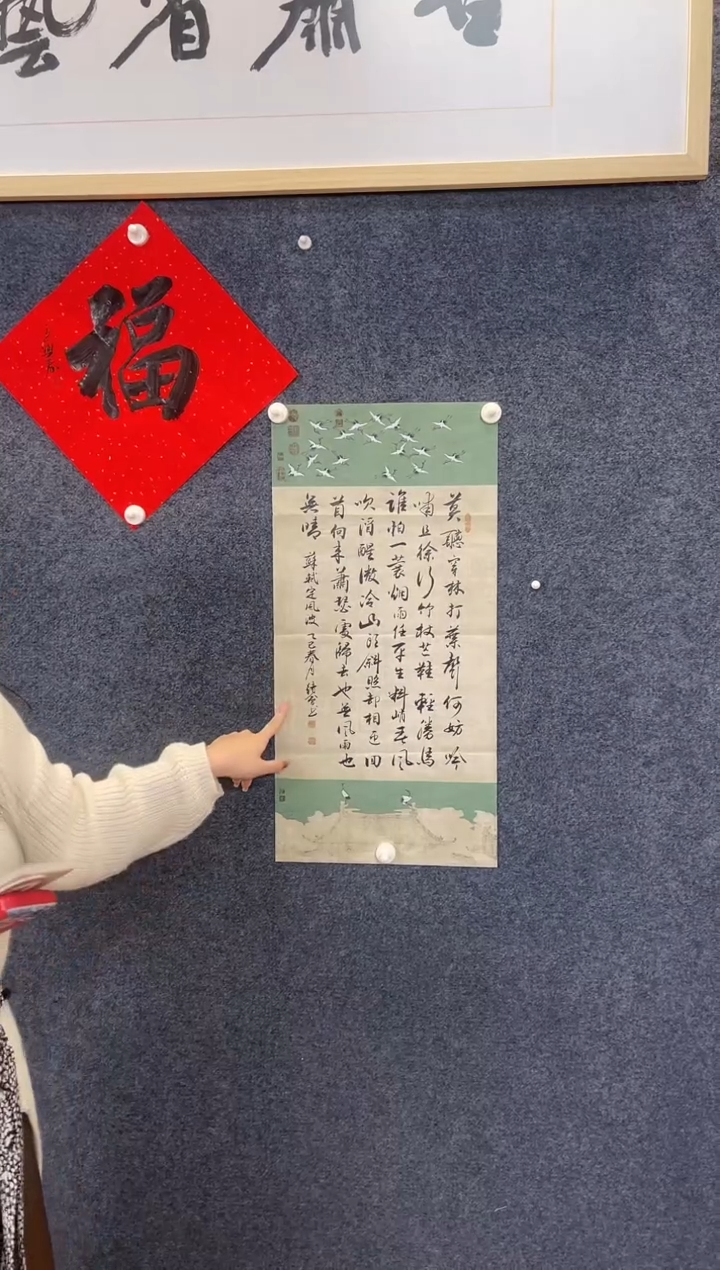 福
莫聽穿林打葉聲何妨吟
嘯且徐行竹杖芒鞋輕勝馬
誰怕一蓑烟雨任平生料峭春風
吹酒醒微冷山頭斜照却相迎回
首向來蕭瑟處歸去也無風雨也
無晴 蘇軾定風波 乙巳春月